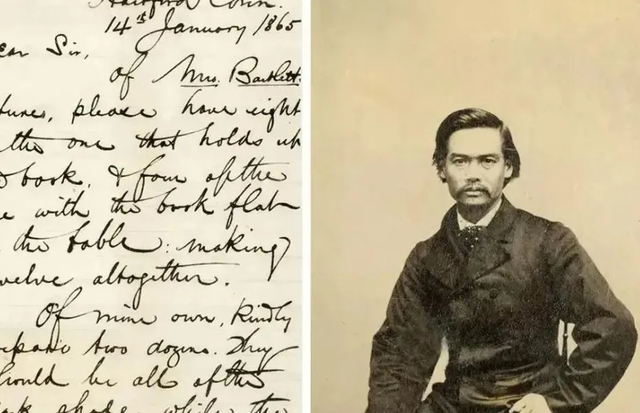 Hartford Conn.
14th January 1865
ear Sir,
Of Mrs. Bartlett
tures, please have eight
the one that holds up
book, & four of the
e with the book flat
the table: making
welve altogether.
Of mine own, kindly
epare two dozen. They
should be all of the
shape, while the